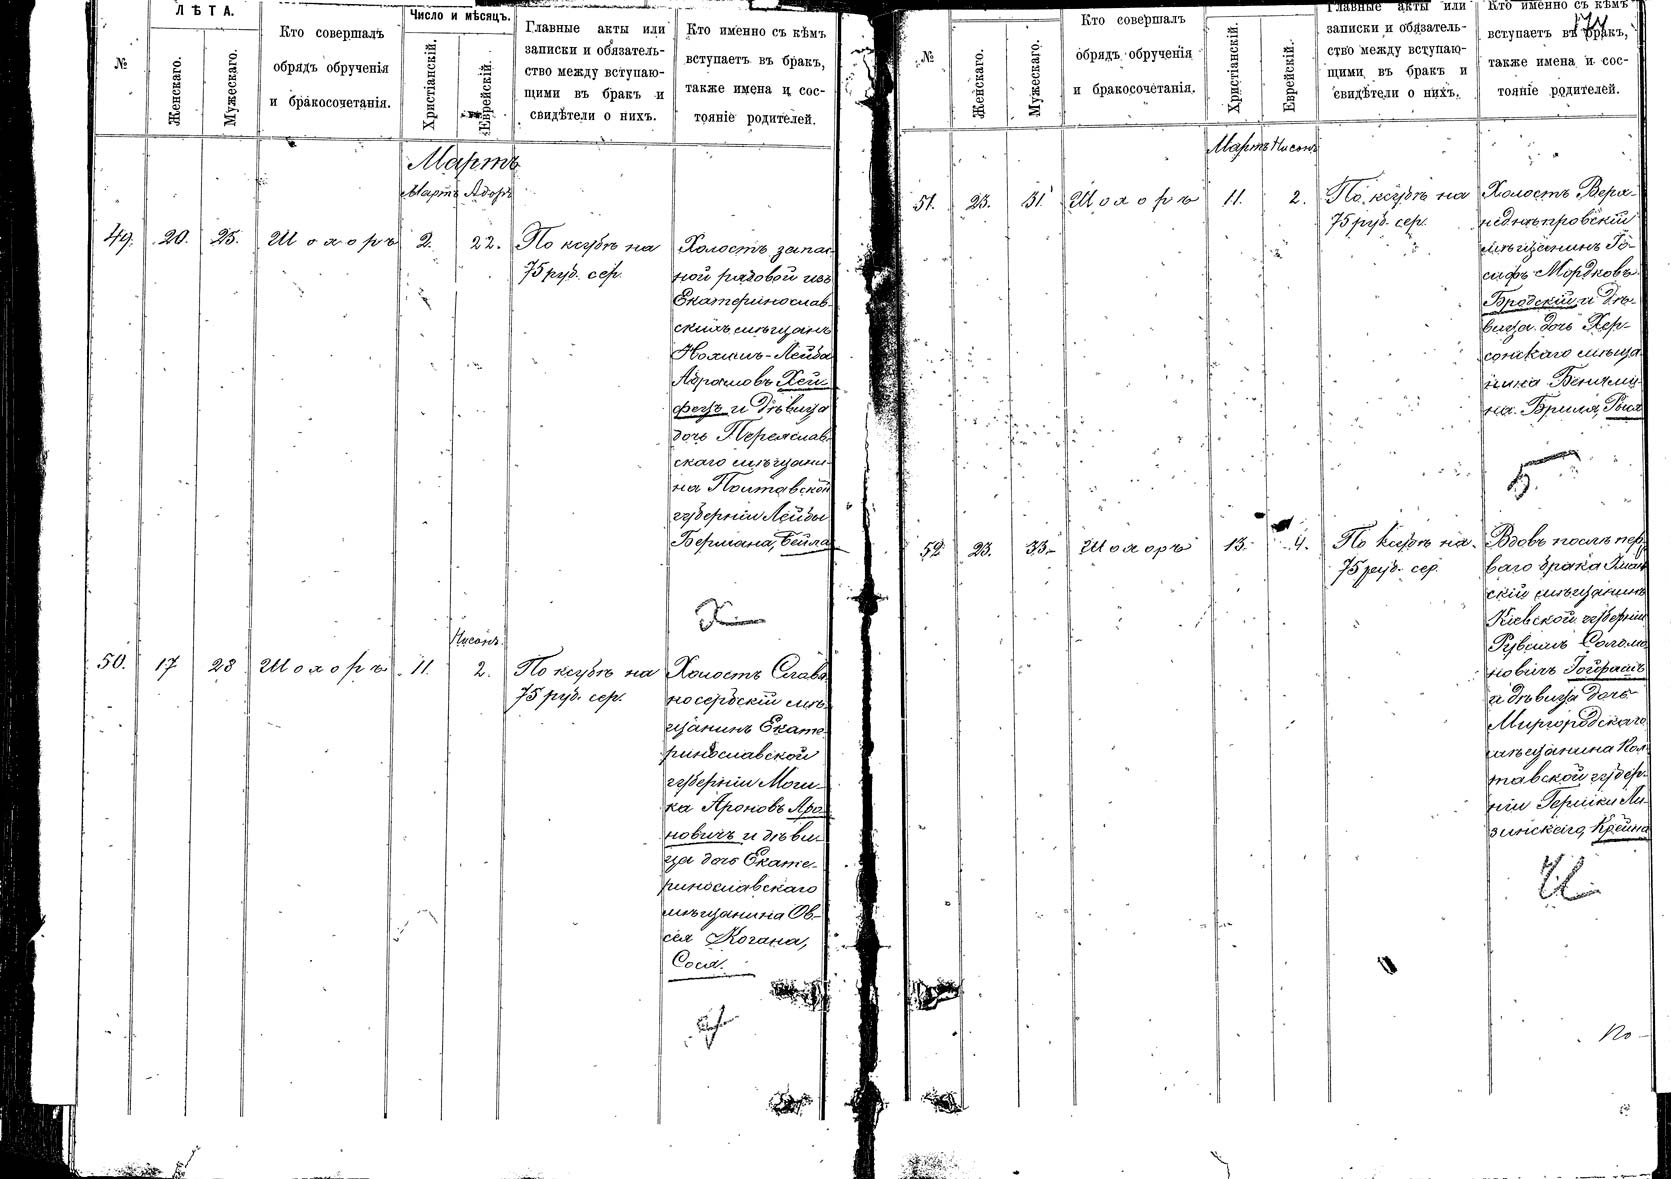 ЛѢТА.
№
Женскаго.
Мужескаго.
Кто совершалъ
обрядъ обрученія
и бракосочетанія.
Число и мѣсяцъ.
Христіанскій.
Еврейскій.
Главные акты или
записки и обязатель-
ство между вступаю-
щими въ бракъ и
свидѣтели о нихъ.
Кто именно съ кѣмъ
вступаетъ въ бракъ,
также имена и сос-
тояніе родителей.
Мартъ
Мартъ Адоръ
49. 20. 25. Шохоръ 2. 22.
По ксубѣ на
75 руб. сер.
Холостъ запас-
ной рядовой изъ
Екатеринослав-
скихъ мѣщанъ
Нохимъ-Лейба
Абрамовъ Хей-
фецъ и дѣвица
дочь Переяслав-
скаго мѣщани-
на Полтавской
губерніи Лейбы
Бермана, Бейла
Нисонъ.
50. 17 23 Шохоръ 11. 2.
По ксубѣ на
75 руб. сер.
Холостъ Славя
носербскій мѣ-
щанинъ Екате-
ринославской
губерніи
ка Ароновъ Аро-
новичъ и дѣви-
ца дочь Екате-
ринославскаго
мѣщанина Ов-
сея Когана,
Сося.
174
№
Женскаго.
Мужескаго.
Кто совершалъ
обрядъ обрученія
и бракосочетанія.
Христіанскій.
Еврейскій.
Главные акты или
записки и обязатель-
ство между вступаю-
щими въ бракъ и
свидѣтели о нихъ.
Кто именно съ кѣмъ
вступаетъ въ бракъ,
также имена и сос-
тояніе родителей.
Мартъ Нисонъ
51. 23. 31. Шохоръ 11. 2.
По ксубѣ на
75 руб. сер.
Холостъ Верх-
неднѣпровскій
мѣщанинъ Іо-
сифъ Мордковъ
Бродскій и дѣ-
вица дочь Хер-
сонскаго мѣща
нина Беніями-
на Бриля, Рися
Б
52 23. 33. Шохоръ 13. 4.
По ксубѣ на
75 руб. сер.
Вдовъ послѣ пер
ваго брака
скій мѣщанинъ
Кіевской губерніи
Рувимъ Соломо
новичъ
и дѣвица дочь
Миргородскаго
мѣщанина Пол-
тавской губер-
ніи Гершки Ли-
зинскаго, Крейна
По-